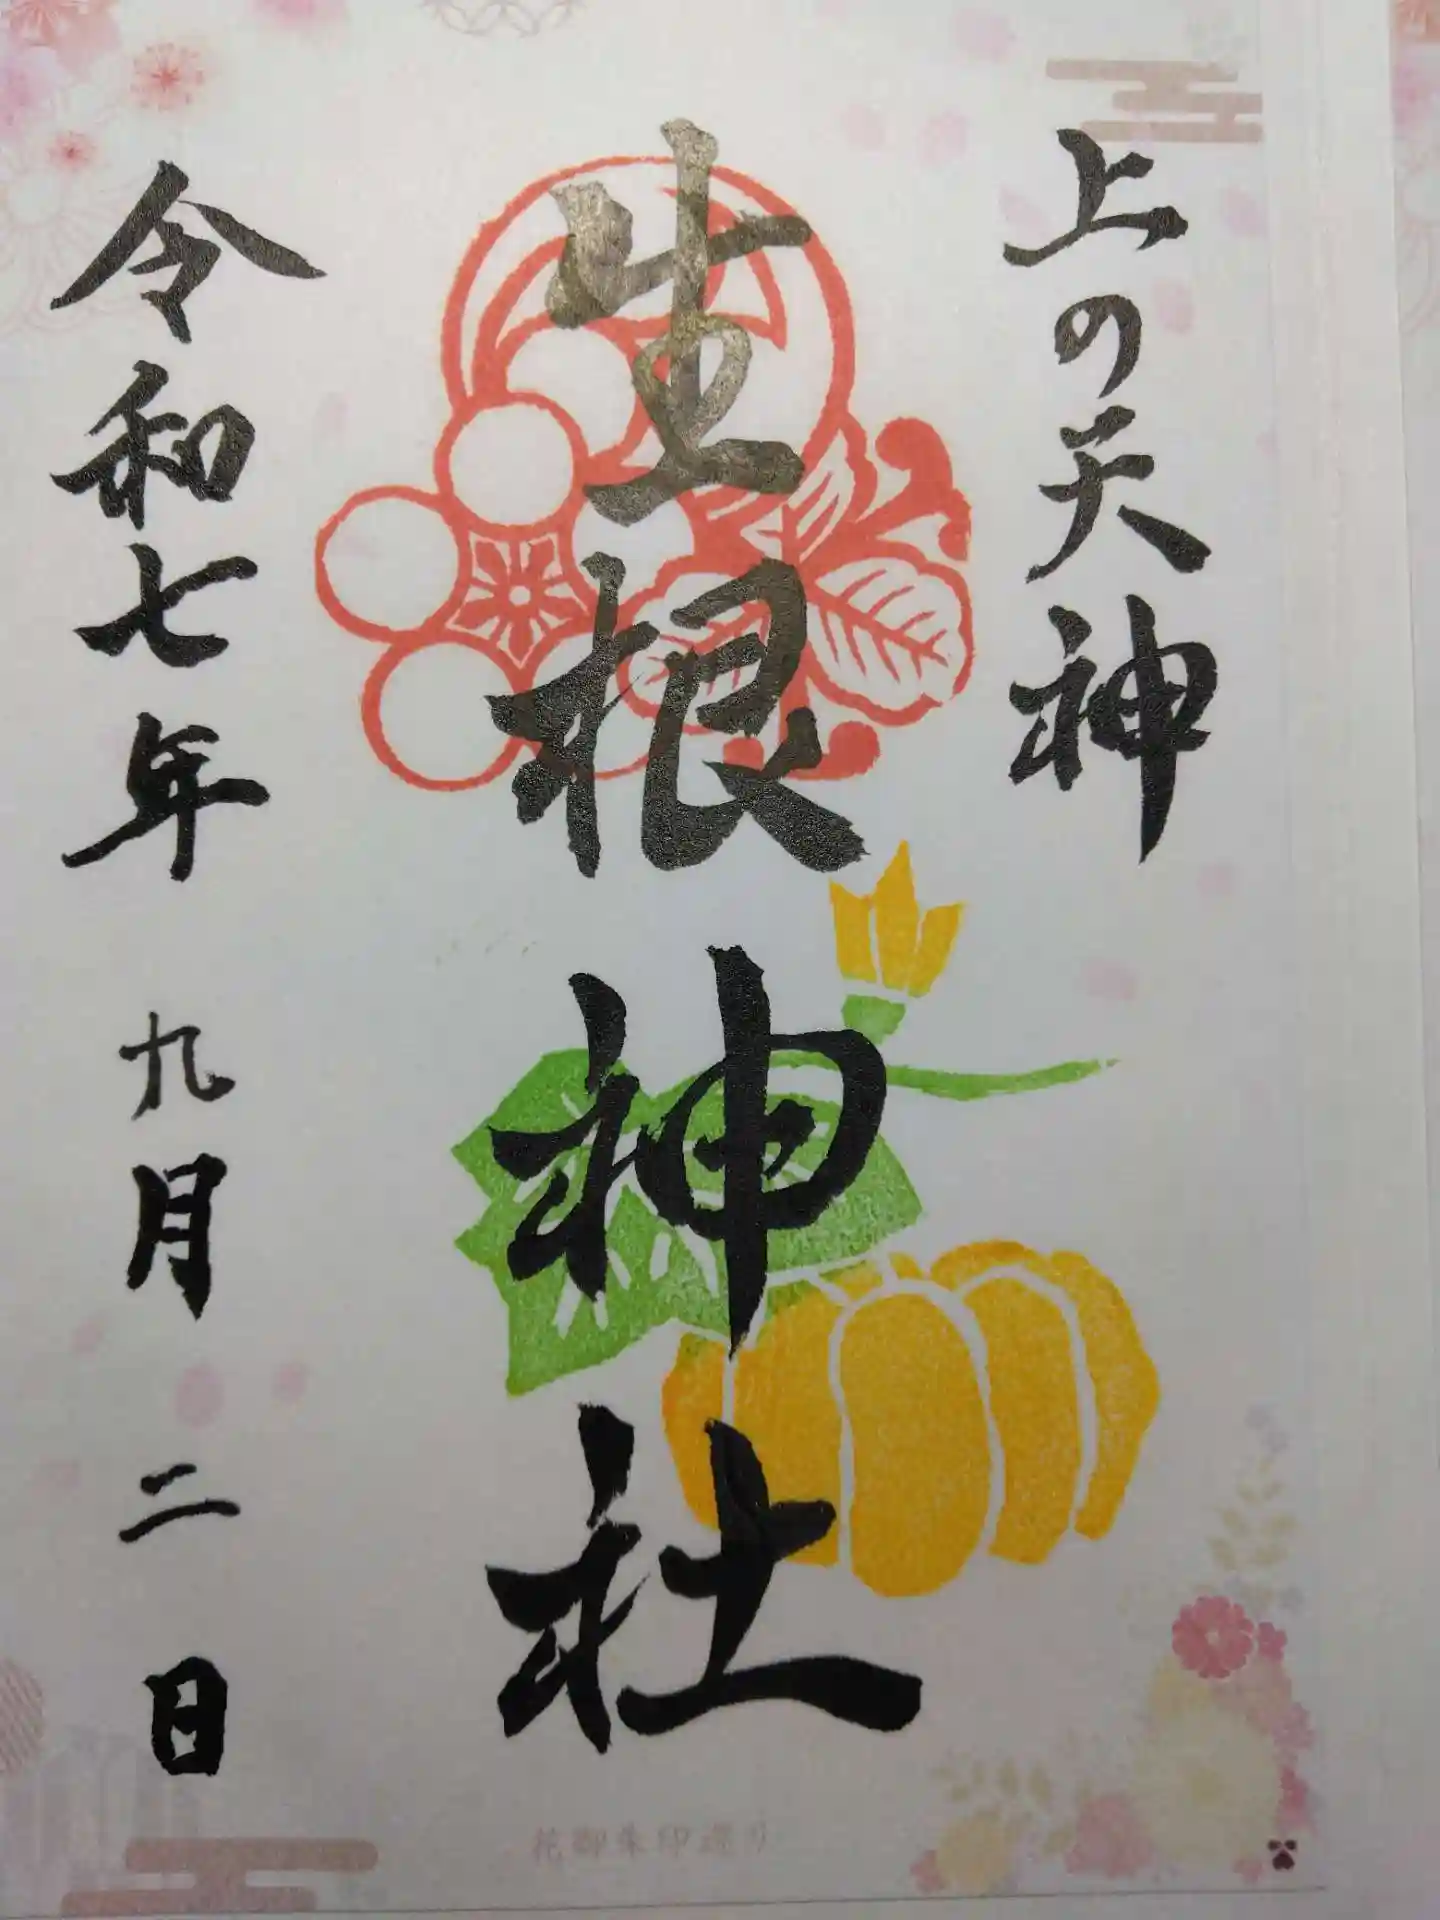 上の天神
生根神社
令和七年 九月 二日
花御朱印巡り